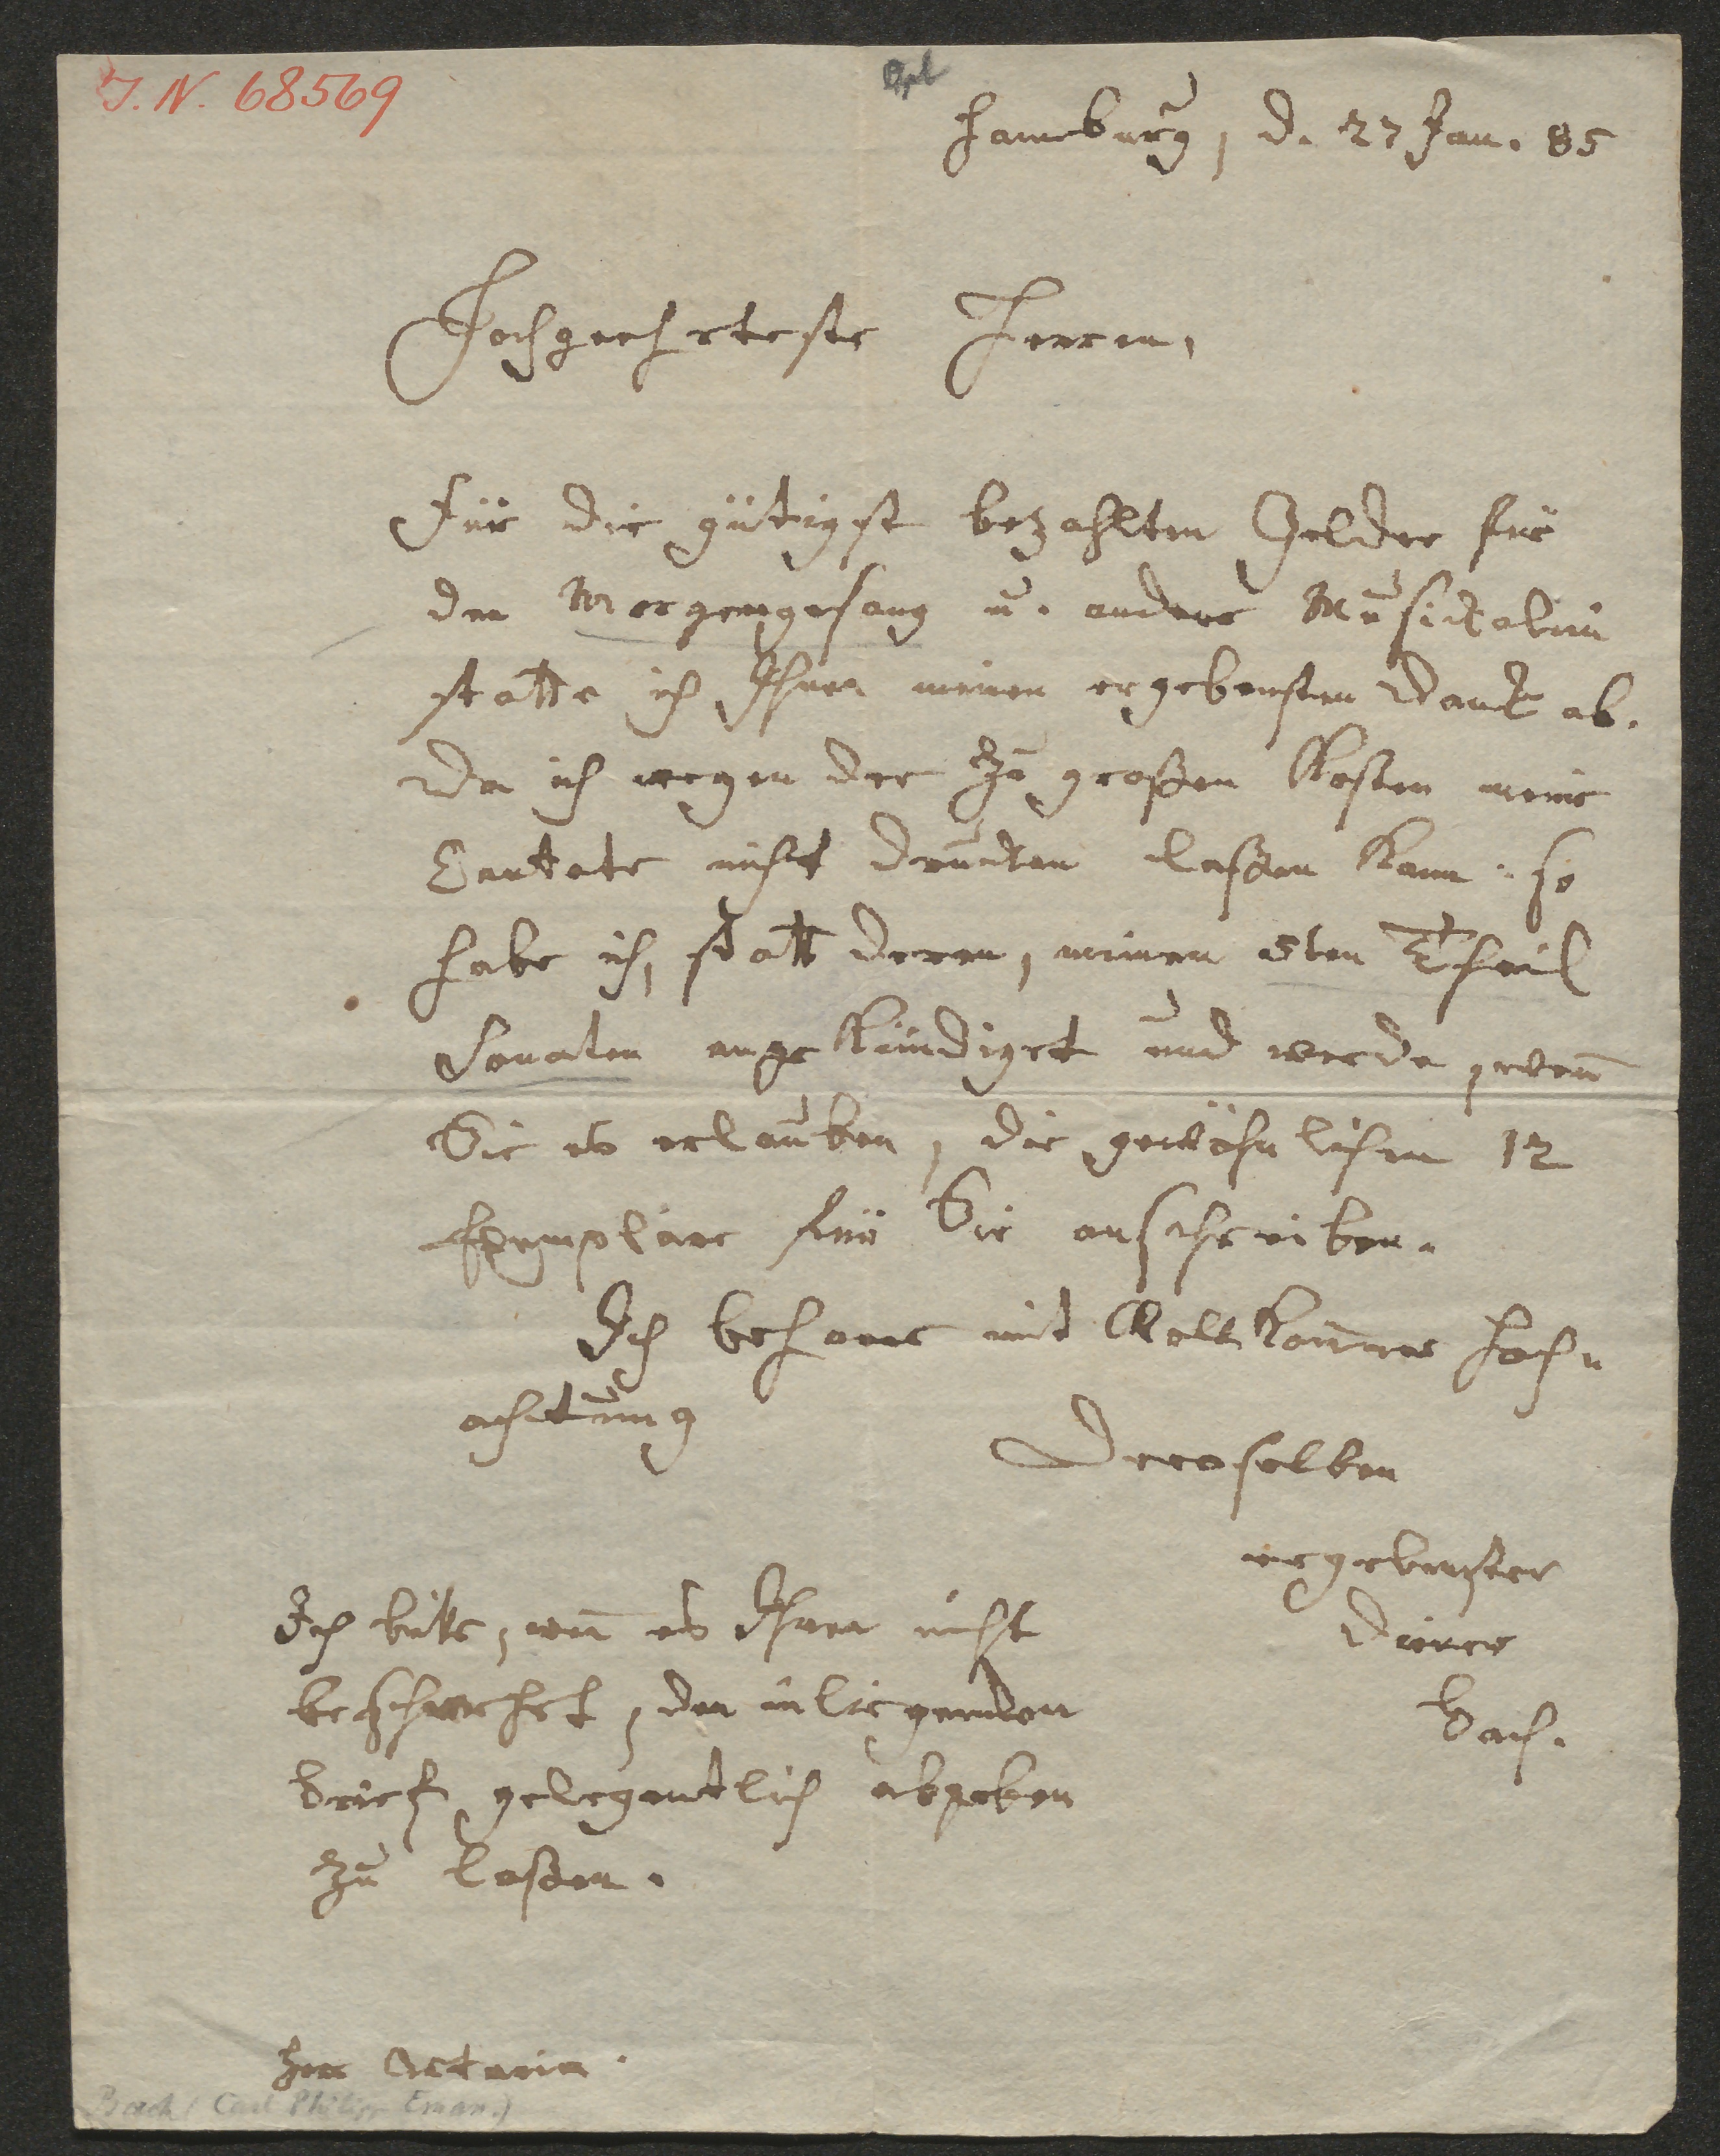 I. N. 68569
Hamburg, d. 27 Jan. 85
Hochgeehrteste Herren,
Für die gütigst bezahlten Gelder für
den Morgengesang u. andere Musickalien
statte ich Ihnen meinen ergebensten Danck ab.
Da ich wegen der zu großen Kosten meine
Cantate nicht drucken laßen kann: so
habe ich, statt deren, meinen 5ten Theil
Sonaten angekündiget und werde, weñ
Sie es erlauben, die gewöhnlichen 12
Exemplare für Sie anschreiben.
Ich beharre mit vollkomner Hoch-
achtung
Deroselben
ergebenster
Diener
Bach.
Ich bitte, weñ es Ihnen nicht
beschwehret, den inliegenden
Brief gelegentlich abgeben
zu laßen.
Herr Artaria.
Bach (Carl Philipp Eman.)